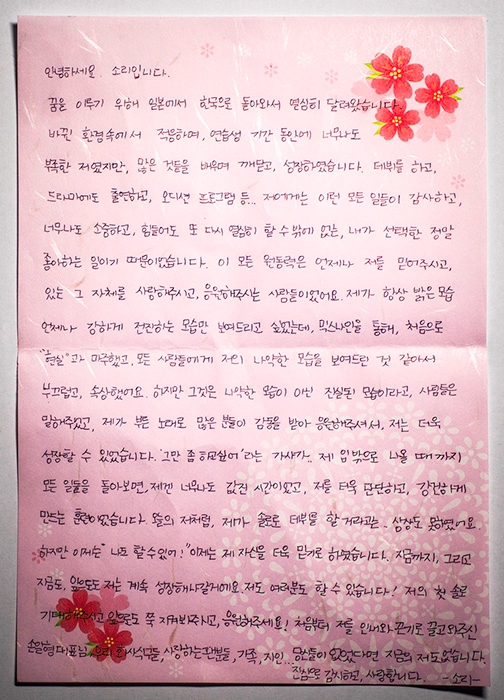 안녕하세요. 소리입니다.
꿈을 이루기 위해 일본에서 한국으로 돌아와서 열심히 달려왔습니다.
바뀐 환경속에서 적응하며, 연습생 기간 동안에 너무나도
부족한 저였지만, 많은 것들을 배우며 깨닫고, 성장하였습니다. 데뷔를 하고,
드라마에도 출연하고, 오디션 프로그램 등.. 저에게는 이런 모든 일들이 감사하고,
너무나도 소중하고, 힘들어도 또 다시 열심히 할 수 밖에 없는, 내가 선택한 정말
좋아하는 일이기 때문이었습니다. 이 모든 원동력은 언제나 저를 믿어주시고,
있는 그 자체를 사랑해주시고, 응원해주시는 사람들이었어요. 제가 항상 밝은 모습
언제나 강하게 전진하는 모습만 보여드리고 싶었는데, 믹스나인을 통해, 처음으로
"현실"과 마주했고, 모든 사람들에게 저의 나약한 모습을 보여드린 것 같아서
부끄럽고, 속상했어요. 하지만 그것은 나약한 모습이 아닌 진실된 모습이라고, 사람들은
말해주었고, 제가 부른 노래로 많은 분들이 감동을 받아 응원해주셔서, 저는 더욱
성장할 수 있었습니다. '그만 좀 하고싶어'라는 가사가.. 제 입 밖으로 나올 때까지
모든 일들을 돌아보면, 제겐 너무나도 값진 시간이었고, 저를 더욱 단단하고, 강인하게
만드는 훈련이었습니다. 오늘의 저처럼, 제가 솔로 데뷔를 할 거라고는.. 상상도 못하였어요.
하지만 이제는 "나도 할 수 있어!" 이제는 제 자신을 더욱 믿기로 하였습니다. 지금까지, 그리고
지금도, 앞으로도 저는 계속 성장해나갈거에요. 저도 여러분도 할 수 있습니다! 저의 첫 솔로
기대해주시고 앞으로도 쭉 지켜봐주시고, 응원해주세요! 처음부터 저를 인내와 끈기로 끌고와주신
손일형 대표님, 우리 회사식구들, 사랑하는 팬분들, 가족, 지인... 당신들이 없었다면 지금의 저도 없습니다.
진심으로 감사하고, 사랑합니다. -소리-